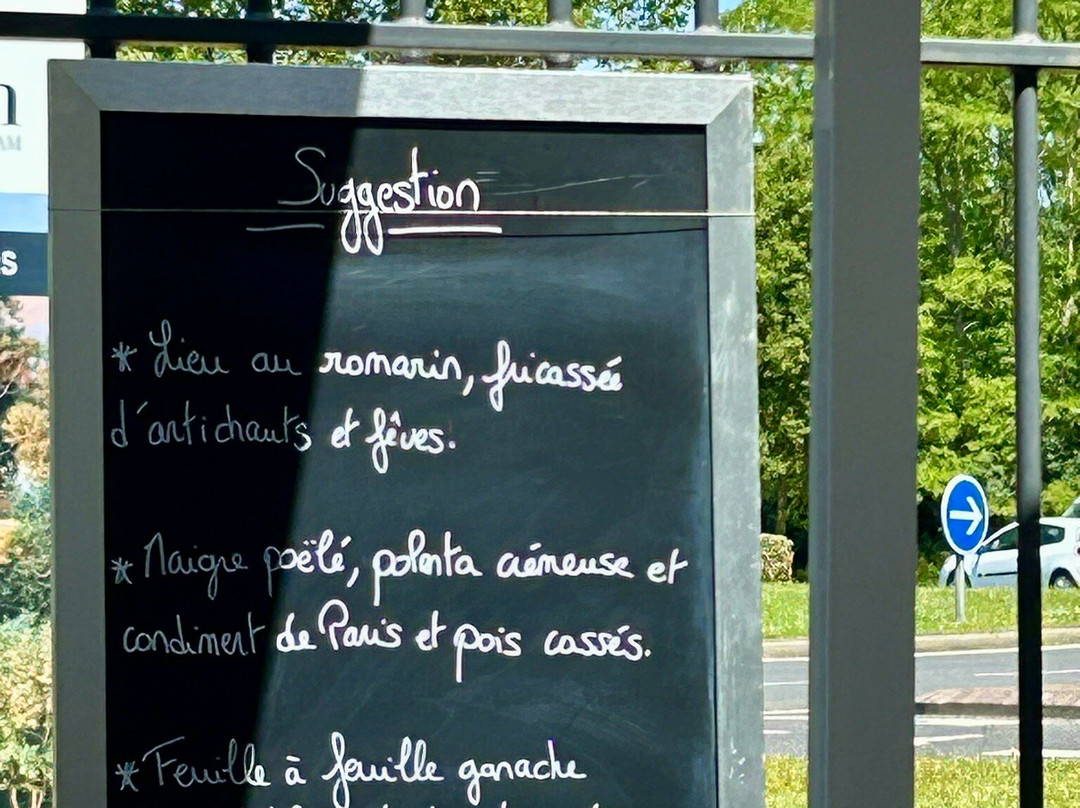 n
AM
s
Suggestion
* Lieu au romarin, fricassée
d'artichauts et fêves.
* Maigre poëlé, polenta crémeuse et
condiment de Paris et pois cassés.
* Feuille à feuille ganache